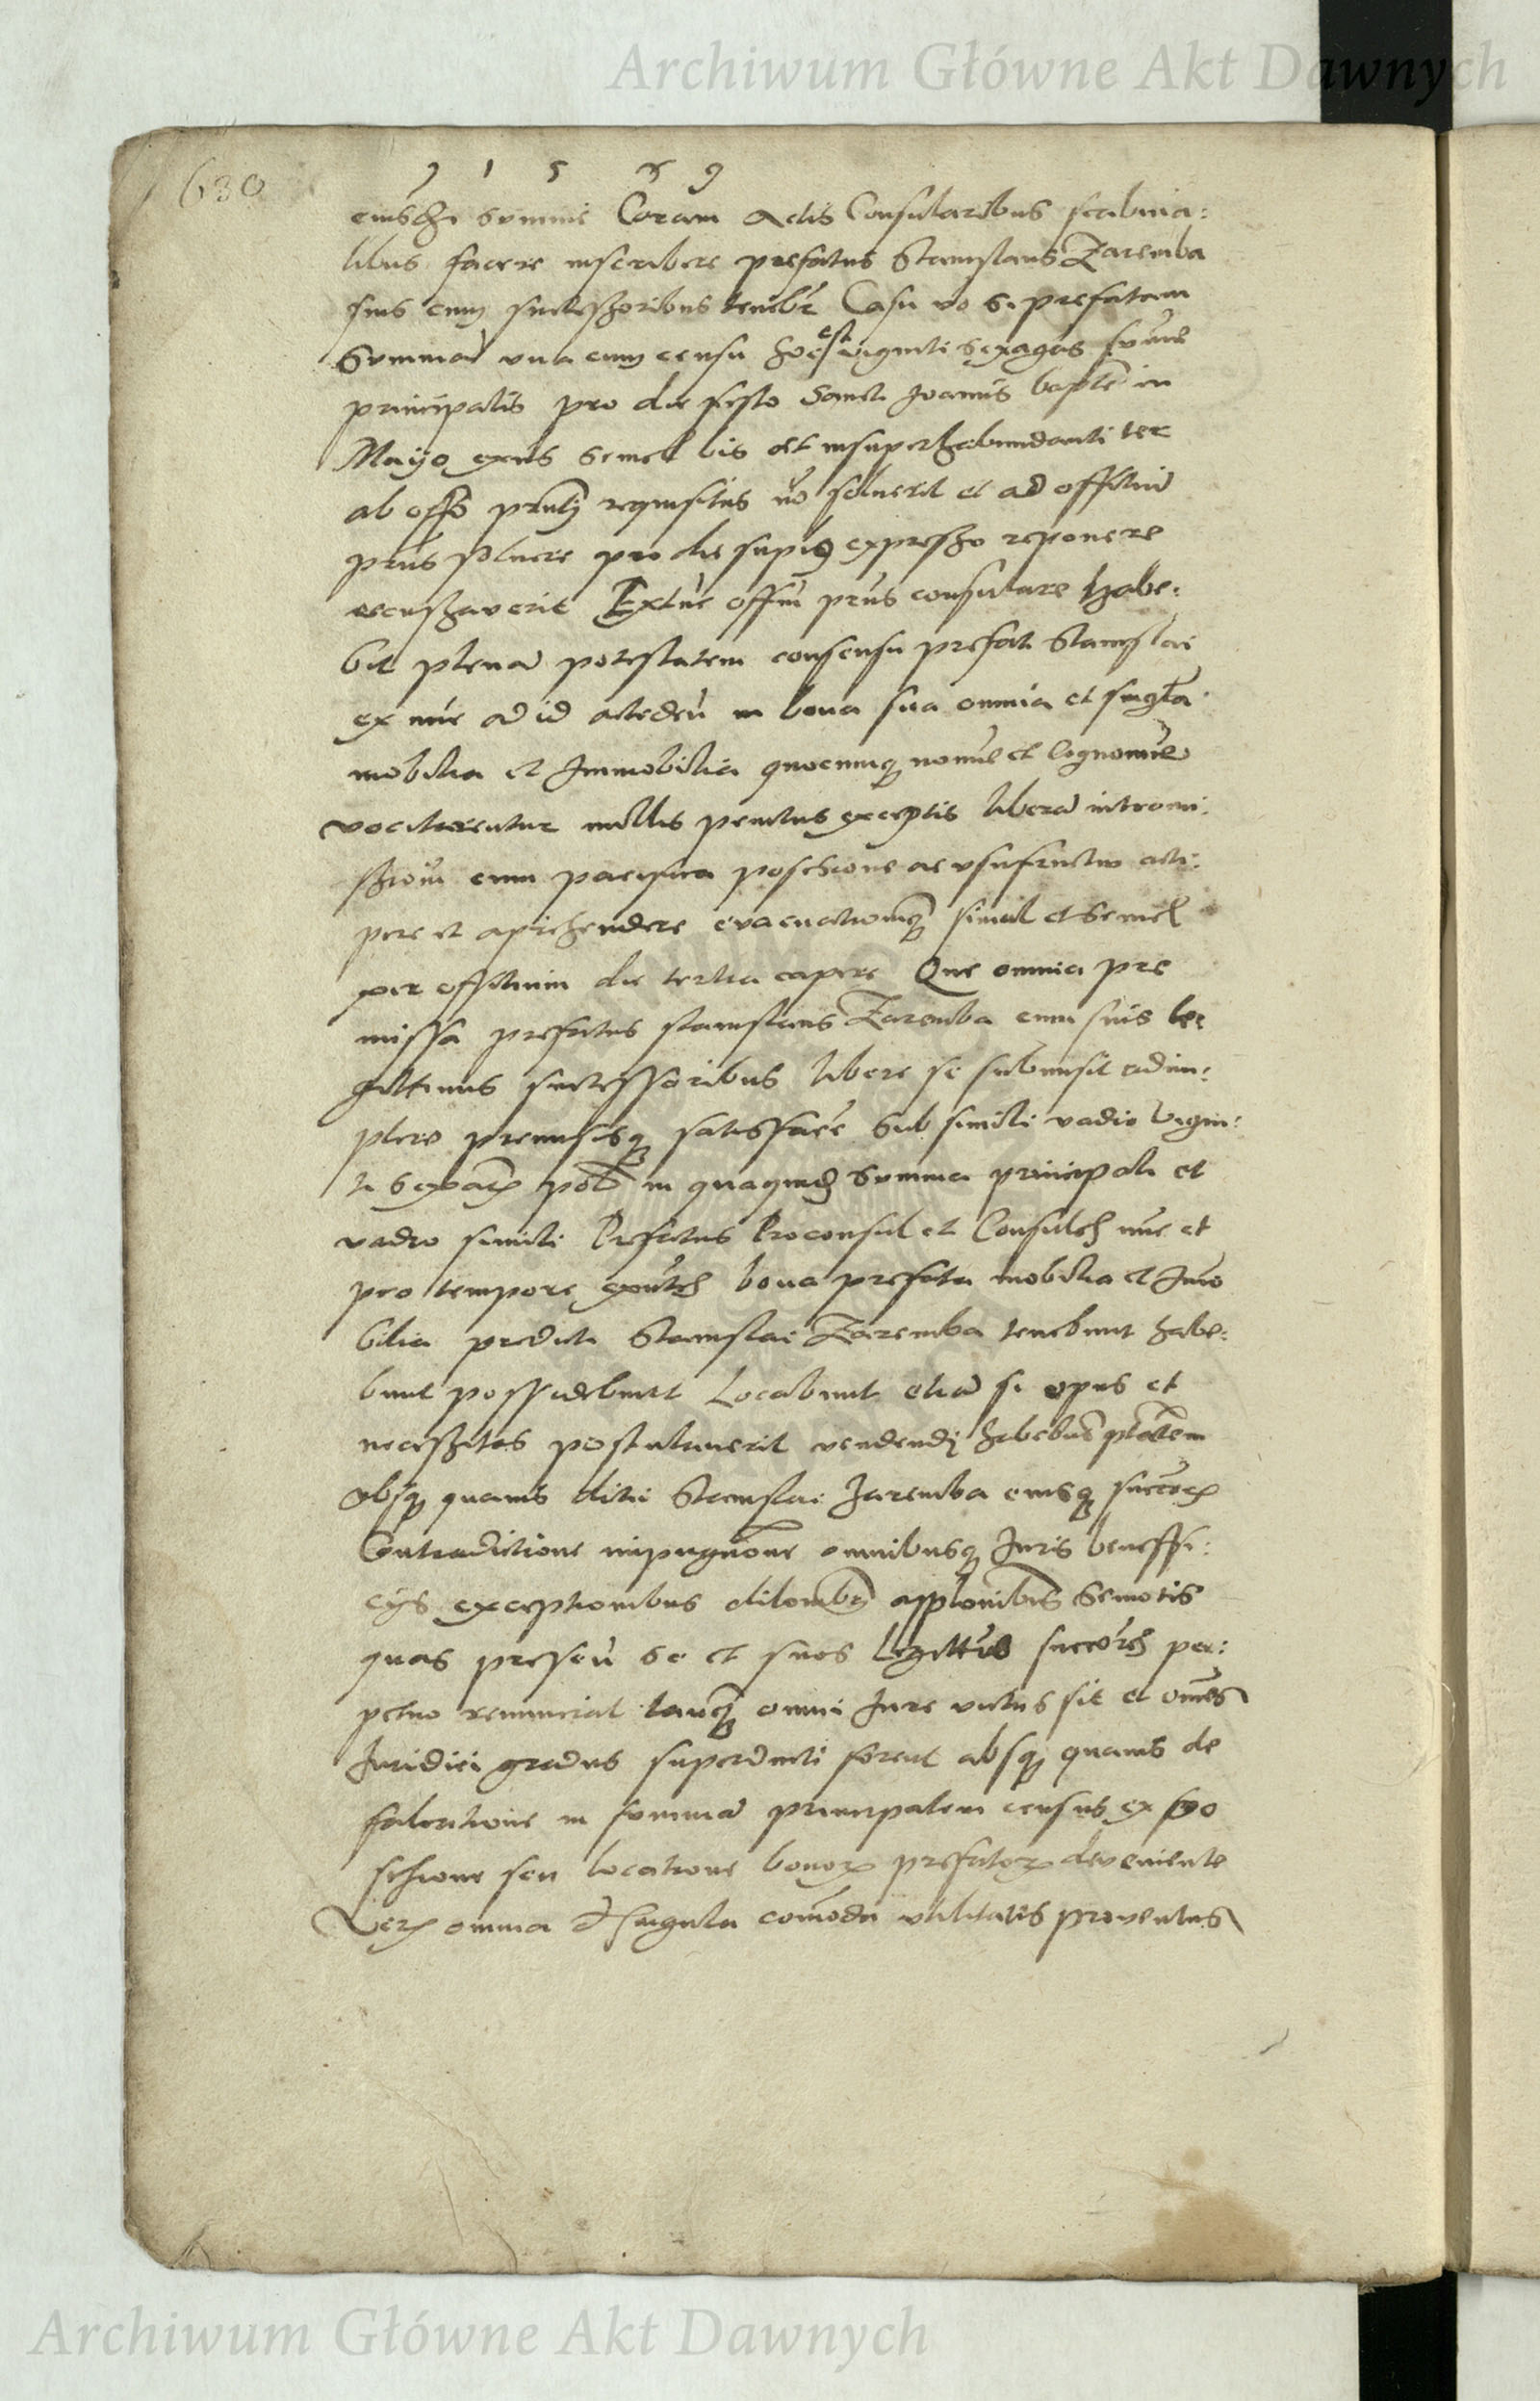 Archiwum Główne Akt Dawnych
630
1 5 9
eiusdem summe Coram Actis Consularibus scabina:
libus facere inscribere prefatus Stanislaus Zaremba
suis cum successoribus tenebr Casu vo si prefatam
Summa una cum censu hoc est viginti sexagas sume
principalis pro die festo Sancti Joannis baptē in
Mayo exns semel bis et insuperhabundanti ter
ab offo pnti requisitus no soluerit et ad offitiu
pns soluere pro die supius expresso reponere
recusaverit Extuc offm pns consulare habe:
bit plena potestatem consensu prefati Stanislai
ex nuc ad id accedeu in bona sua omnia et singla
mobilia et Immobilia quocunq nomie et cognomie
vocitarentur nullis penitus exceptis libera intromi:
ssione cum pacifica possessione ac usufructu acci:
pere et aprehendere evacuationeq simul et semel
per offitium die tertia capere Que omnia pre
missa prefatus stanislaus Zaremba cum suis le
gittimis successoribus libere se submisit adim:
plere premissisq satisfacere Sub simili vadio vigin:
ti sexag in quaquid summa principali et
vadio simili Prefatus Proconsul et Consules nuc et
pro tempore exntes bona prefata mobilia et Imo
bilia predicti Stanislai Zaremba tenebunt habe:
bunt possidebunt Locabunt etia si opus et
necessitas postulaverit vendendi habebunt ptatem
absq quavis dicti Stanislai Zaremba eiusq succes
Contradictione impugnone omnibusq Juris beneffi:
cijs exceptionibus dilonibus applonibus semotis
quas presen se et suos legittios succores per:
petuo renunciat tanq omni Jure victus sit et omes
Juridici gradus superducti forent absq quavis de
falcatione in summa principalem census ex po
sessione seu locatione bonor prefator deveniente
Ver omnia et singula comoda utilitatis proventus
Archiwum Główne Akt Dawnych